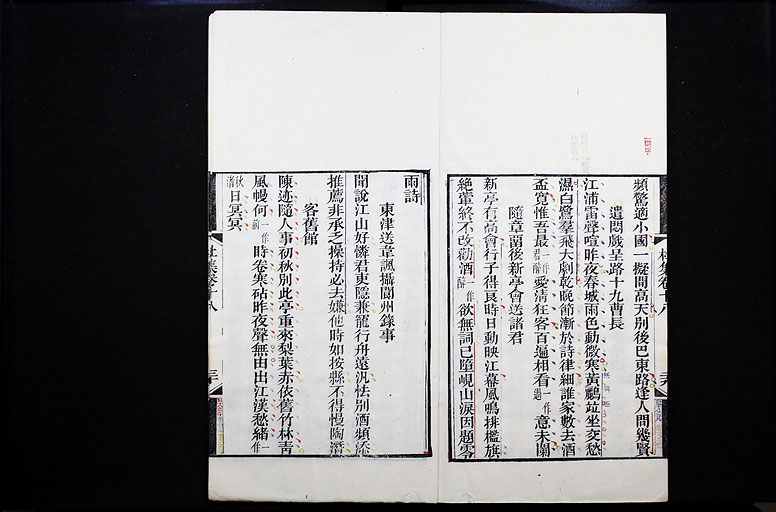 頻驚適小國一擬問高天別後巴東路逢人問幾賢
遣悶戲呈路十九曹長
江浦雷聲喧昨夜春城雨色動微寒黃鸝竝坐交愁
濕白鷺羣飛大劇乾晚節漸於詩律細誰家數去酒
盃寬惟吾最一作君醉愛清狂客百遍相看一作過意未闌
隨章留後新亭會送諸君
新亭有高會行子得良時日動映江幕風鳴排檻旗
絕葷終不改勸酒一作醉欲無詞已墮峴山淚因題零
雨詩
東津送韋諷攝閬州錄事
聞說江山好憐君吏隱兼寵行舟遠汎怯別酒頻添
推薦非承乏操持必去嫌他時如按縣不得慢陶潛
客舊館
陳迹隨人事初秋別此亭重來梨葉赤依舊竹林靑
風幔何一作前時卷寒砧昨夜聲無由出江漢愁緒一作
秋渚日冥冥
杜集卷十八